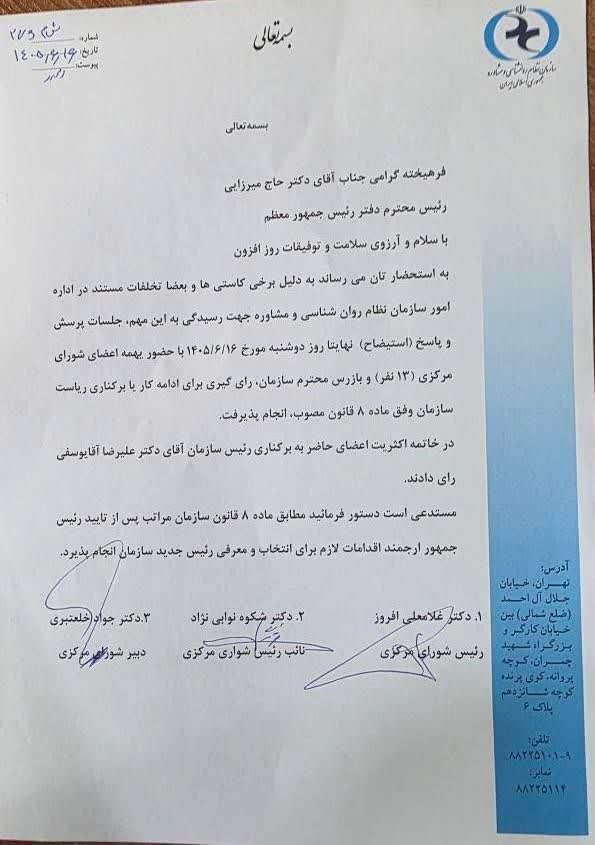 بسمه تعالی
شماره: ش م ۲۷۹
تاریخ: ۱۴۰۵,۶,۱۶
پیوست:
سازمان نظام روانشناسی و مشاوره
جمهوری اسلامی ایران
بسمه تعالی
فرهیخته گرامی جناب آقای دکتر حاج میرزایی
رئیس محترم دفتر رئیس جمهور معظم
با سلام و آرزوی سلامت و توفیقات روز افزون
به استحضار تان می رساند به دلیل برخی کاستی ها و بعضا تخلفات مستند در اداره
امور سازمان نظام روان شناسی و مشاوره جهت رسیدگی به این مهم، جلسات پرسش
و پاسخ (استیضاح) نهایتا روز دوشنبه مورخ ۱۴۰۵/۶/۱۶ با حضور یهمه اعضای شورای
مرکزی (۱۳ نفر) و بازرس محترم سازمان، رای گیری برای ادامه کار یا برکناری ریاست
سازمان وفق ماده ۸ قانون مصوب، انجام پذیرفت.
در خاتمه اکثریت اعضای حاضر به برکناری رئیس سازمان آقای دکتر علیرضا آقایوسفی
رای دادند.
مستدعی است دستور فرمائید مطابق ماده ۸ قانون سازمان مراتب پس از تایید رئیس
جمهور ارجمند اقدامات لازم برای انتخاب و معرفی رئیس جدید سازمان انجام پذیرد.
۱. دکتر غلامعلی افروز ۲. دکتر شکوه نوابی نژاد ۳.دکتر جواد خلعتبری
رئیس شورای مرکزی نائب رئیس شواری مرکزی دبیر شورای مرکزی
آدرس:
تهران، خیابان
جلال آل احمد
(ضلع شمالی) بین
خیابان کارگر و
بزرگراه شهید
چمران، کوچه
پروانه، کوی پرنده
کوچه شانزدهم
پلاک ۶
تلفن:
۸۸۲۲۵۱۰۱-۹
نمابر:
۸۸۲۲۵۱۱۴